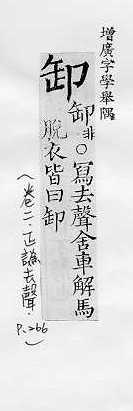 增廣字學舉隅
卸 卸非○寫去聲舍車解馬
脫衣皆曰卸
(卷二‧正譌去聲‧
P.266)